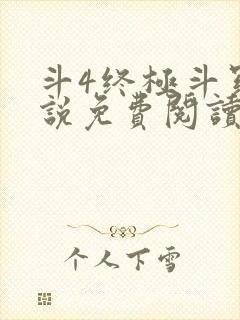 斗4终極斗
說免費閱讀
个人下雪